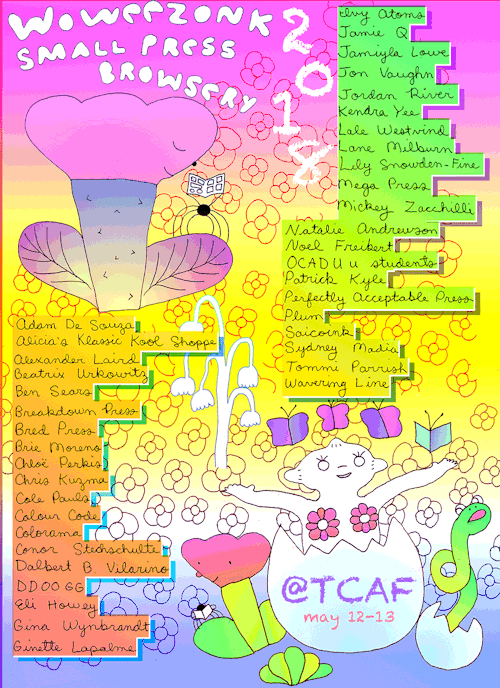 Woweezonk
Small Press
Browsery
2018
Ivy Atoms
Jamie Q
Jamiyla Lowe
Jon Vaughn
Jordan River
Kendra Yee
Lale Westvind
Lane Milburn
Lily Snowden-Fine
Mega Press
Mickey Zacchilli
Natalie Andrewson
Noel Freibert
OCADU u students
Patrick Kyle
Perfectly Acceptable Press
Plum
Saicoink
Sydney Madia
Tommi Parrish
Wavering Line
Adam De Souza
Alicia's Klassic Kool Shoppe
Alexander Laird
Beatrix Urkowitz
Ben Sears
Breakdown Press
Bred Press
Brie Moreno
Chloë Perkis
Chris Kuzma
Cole Pauls
Colour Code
Colorama
Conor Stechschulte
Dalbert B. Vilarino
DDOOGG
Eli Howey
Gina Wynbrandt
Ginette Lapalme
@TCAF
may 12-13